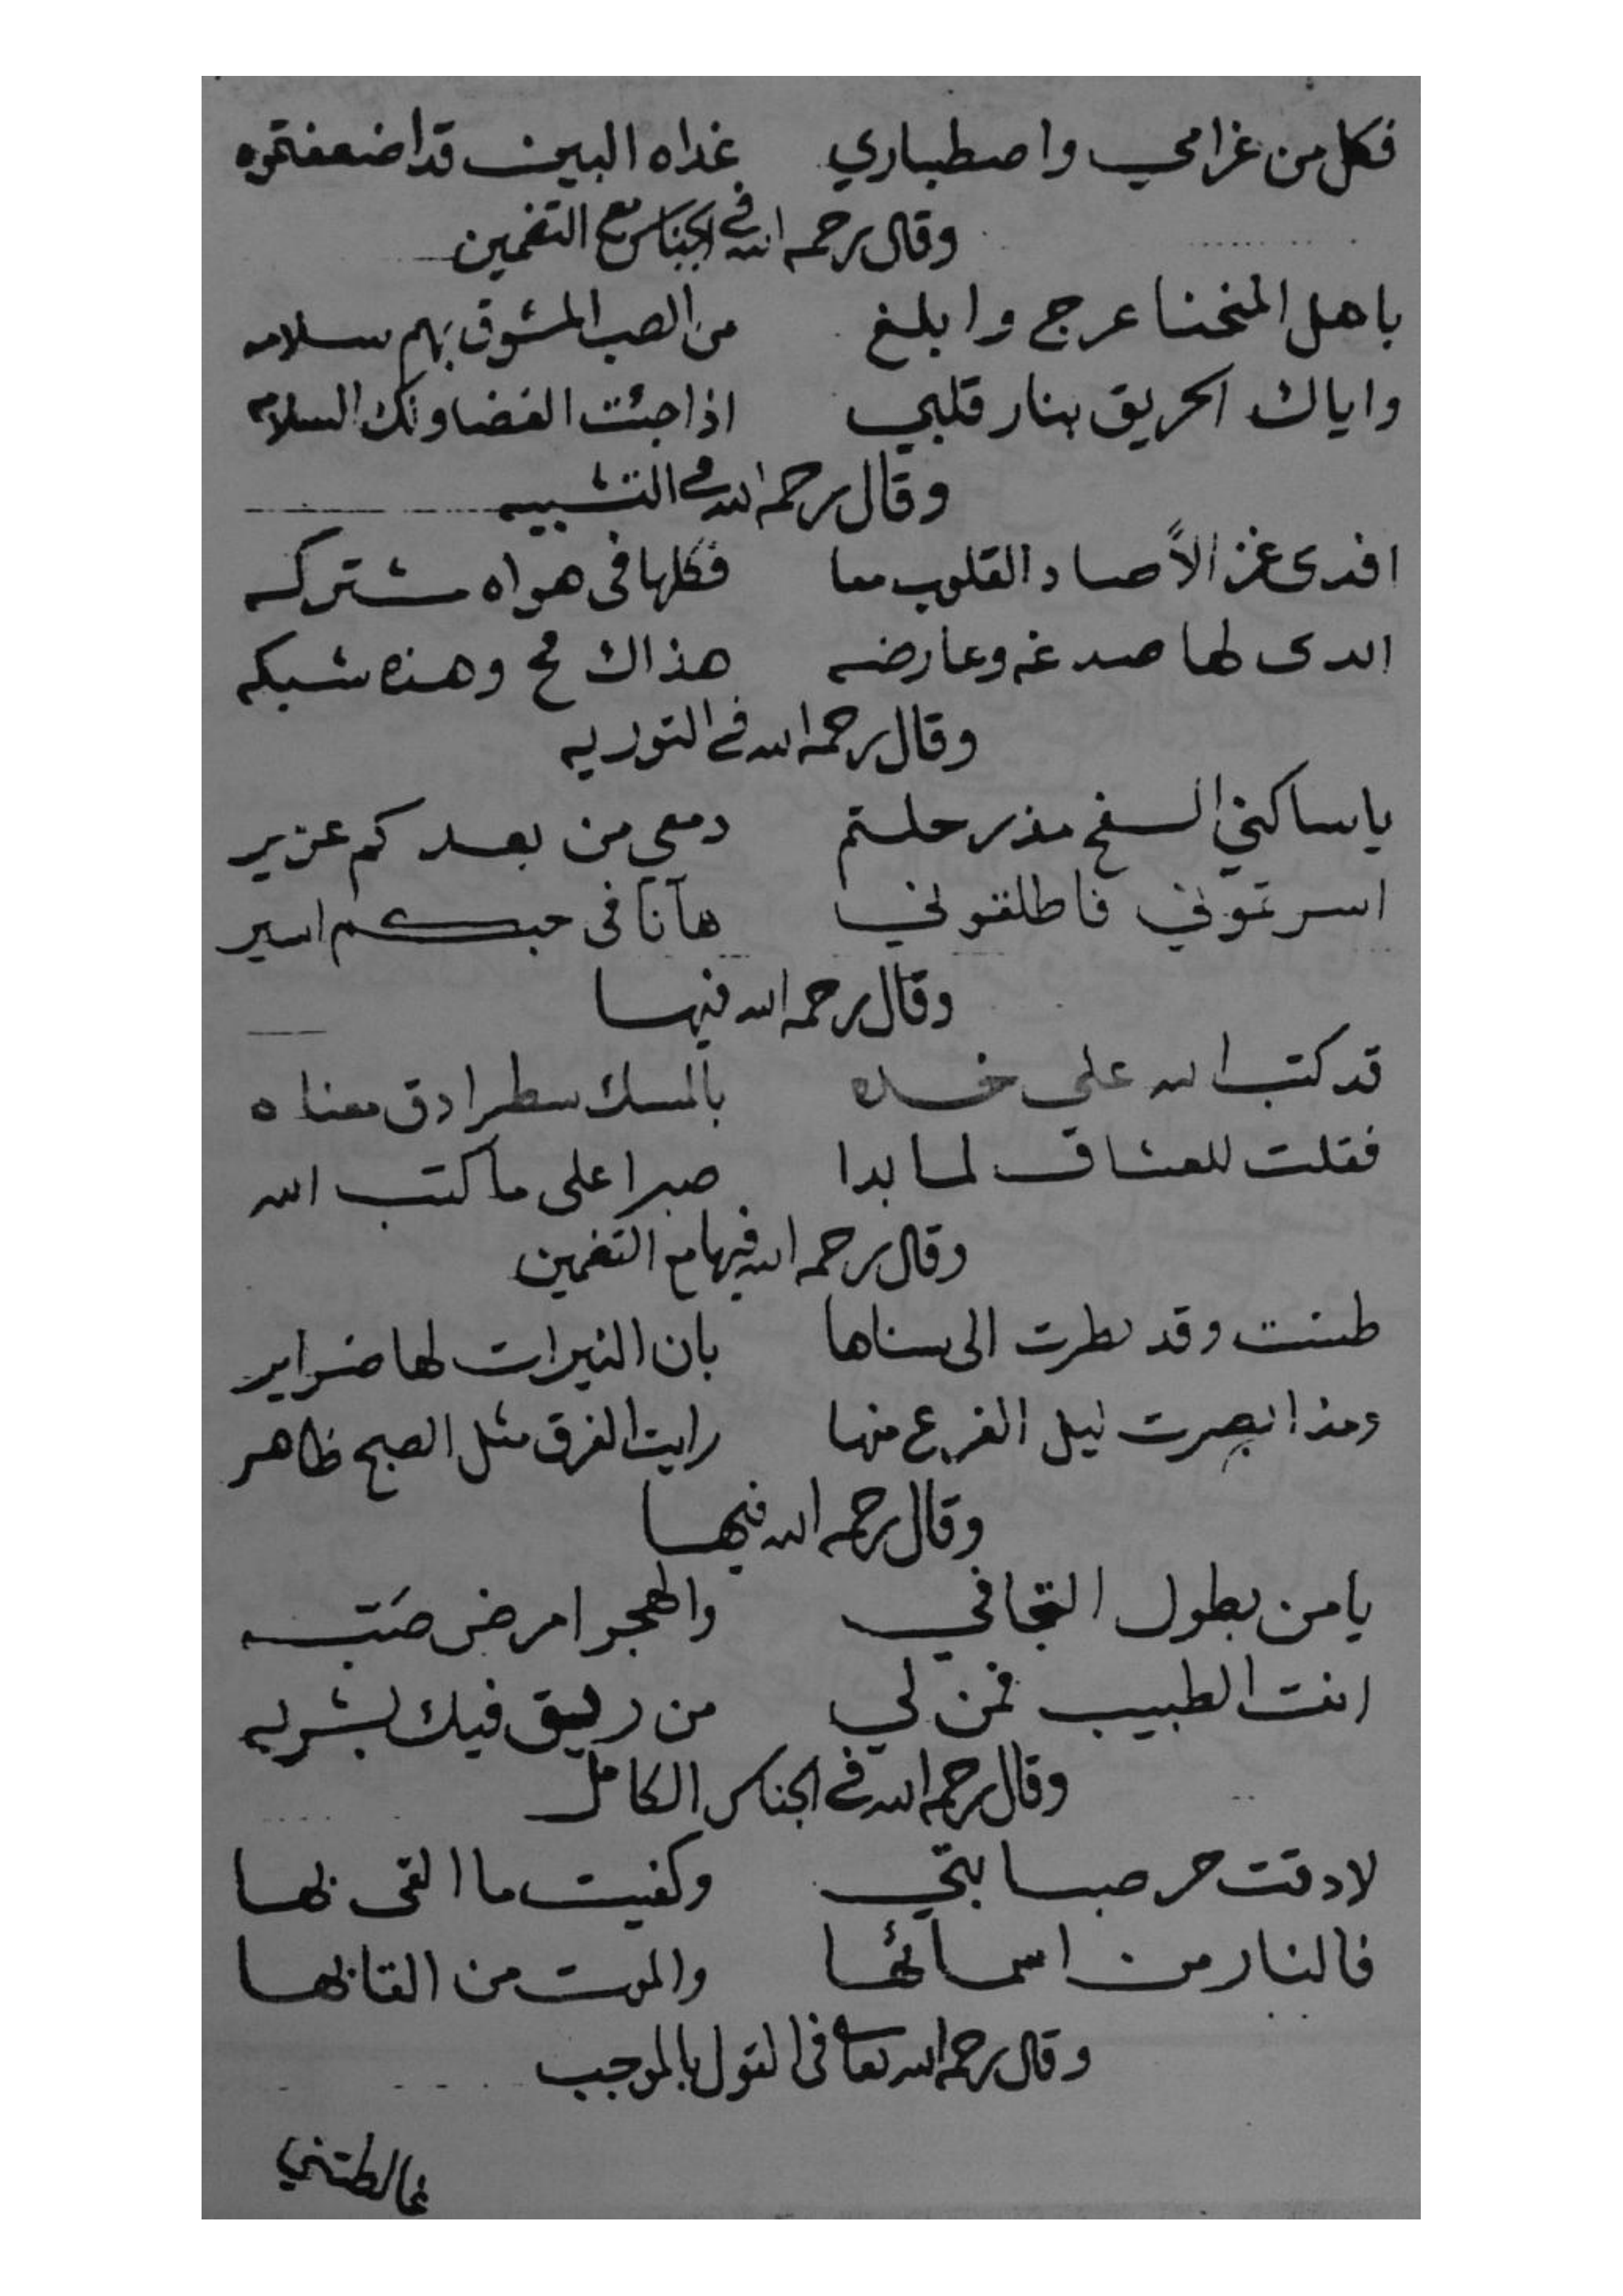 فكل من غرامي واصطباري غداه البين قد اضعفتموه
وقال رحمه الله في الجناس مع التضمين
باهل المنحنا عرج وابلغ من الصب المشوق بهم سلامه
واياك الحريق بنار قلبي اذا جئت الغضا ولك السلامه
وقال رحمه الله في التشبيه
افدى غزالاً صاد القلوب معا فكلها فى هواه مشتركه
ابدى لها صدغه وعارضه هذاك فخ وهذه شبكه
وقال رحمه الله في التوريه
ياساكني السفح مذ رحلتم دمعي من بعدكم غزير
اسرتموني فاطلقوني هآنا فى حبكم اسير
وقال رحمه الله فيها
قد كتب الله على خده بالمسك سطرا دق معناه
فقلت للعشاق لما بدا صبرا على ما كتب الله
وقال رحمه الله فيها مع التضمين
طننت وقد نطرت الى سناها بان النيرات لها ضراير
ومذ ابصرت ليل الفرع منها رايت الفرق مثل الصبح ظاهر
وقال رحمه الله فيها
يا من بطول التجافي والهجر امرض صَبّه
انت الطبيب فمن لي من ريق فيك بشربه
وقال رحمه الله في الجناس الكامل
لا دقت حر صبابتي وكفيت ما القى بها
فالنار من اسمائها والموت من القابها
وقال رحمه الله تعالى فى القول بالموجب
غالطتني